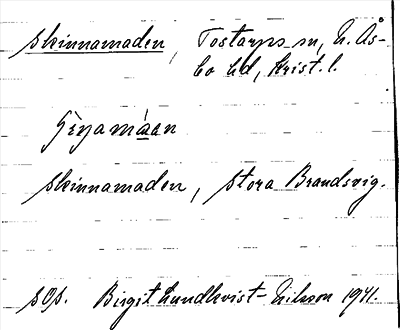 Skinnamaden, Tostarps sn, N. Ås-
bo hd, Krist. l.
Skinnamaden, Stora Brandsvig.
SOA. Birgit Lundkvist-Nilsson 1941.